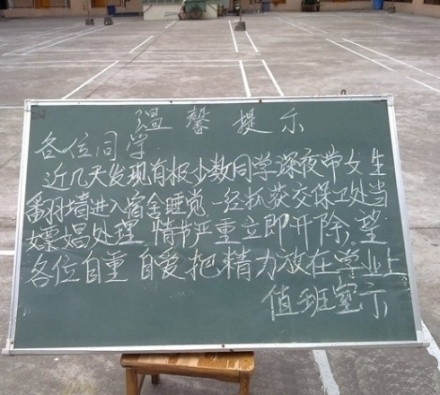 温馨提示
各位同学
近几天发现有极少数同学深夜带女生
翻墙进入宿舍睡觉 一经抓获交保卫处当
嫖娼处理,情节严重立即开除,望
各位自重 自爱 把精力放在学业上
值班室示